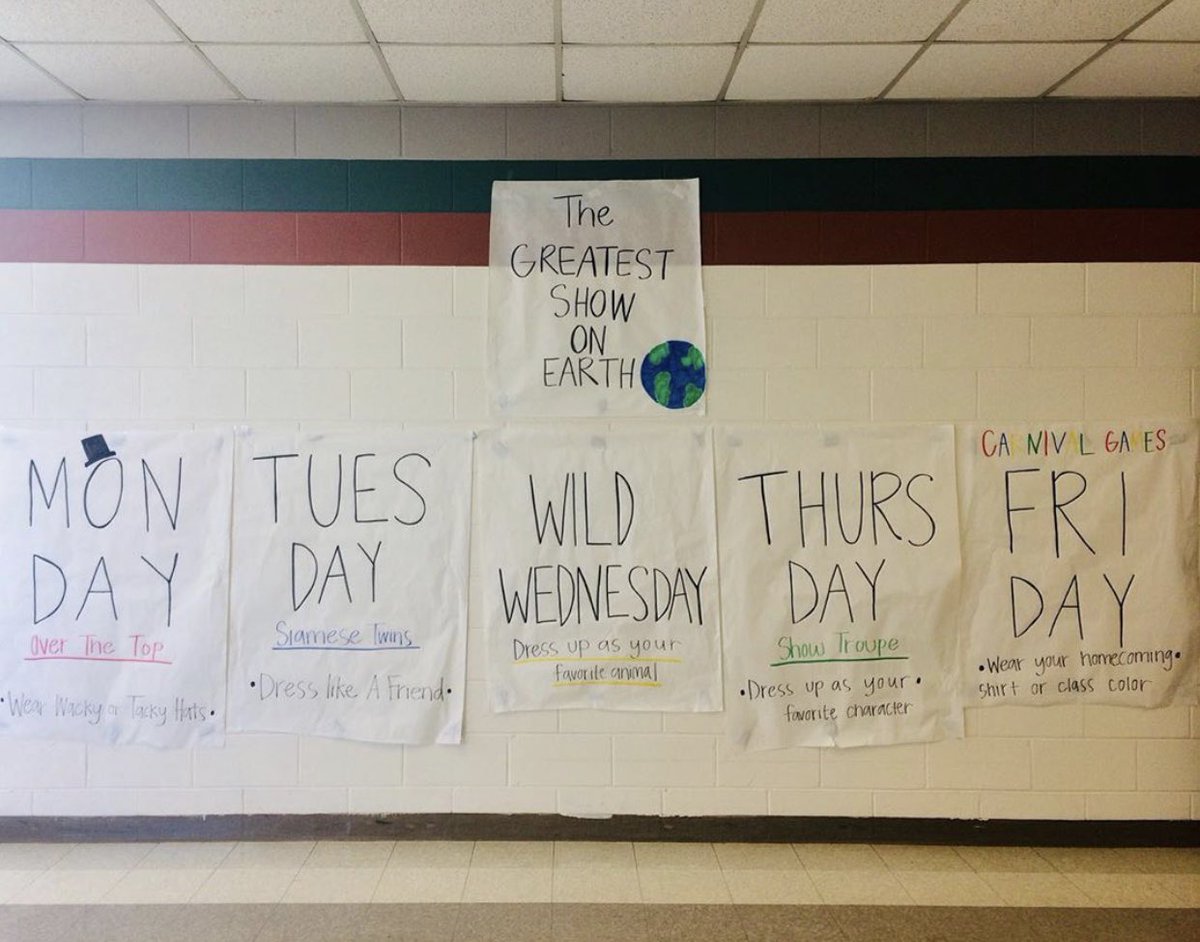 The
GREATEST
SHOW
ON
EARTH
MON
DAY
Over The Top
•Wear Wacky or Tacky Hats•
TUES
DAY
Siamese Twins
•Dress like A Friend•
WILD
WEDNESDAY
Dress up as your
favorite animal
THURS
DAY
Show Troupe
•Dress up as your•
favorite character
CARNIVAL GAMES
FRI
DAY
•Wear your homecoming•
shirt or class color